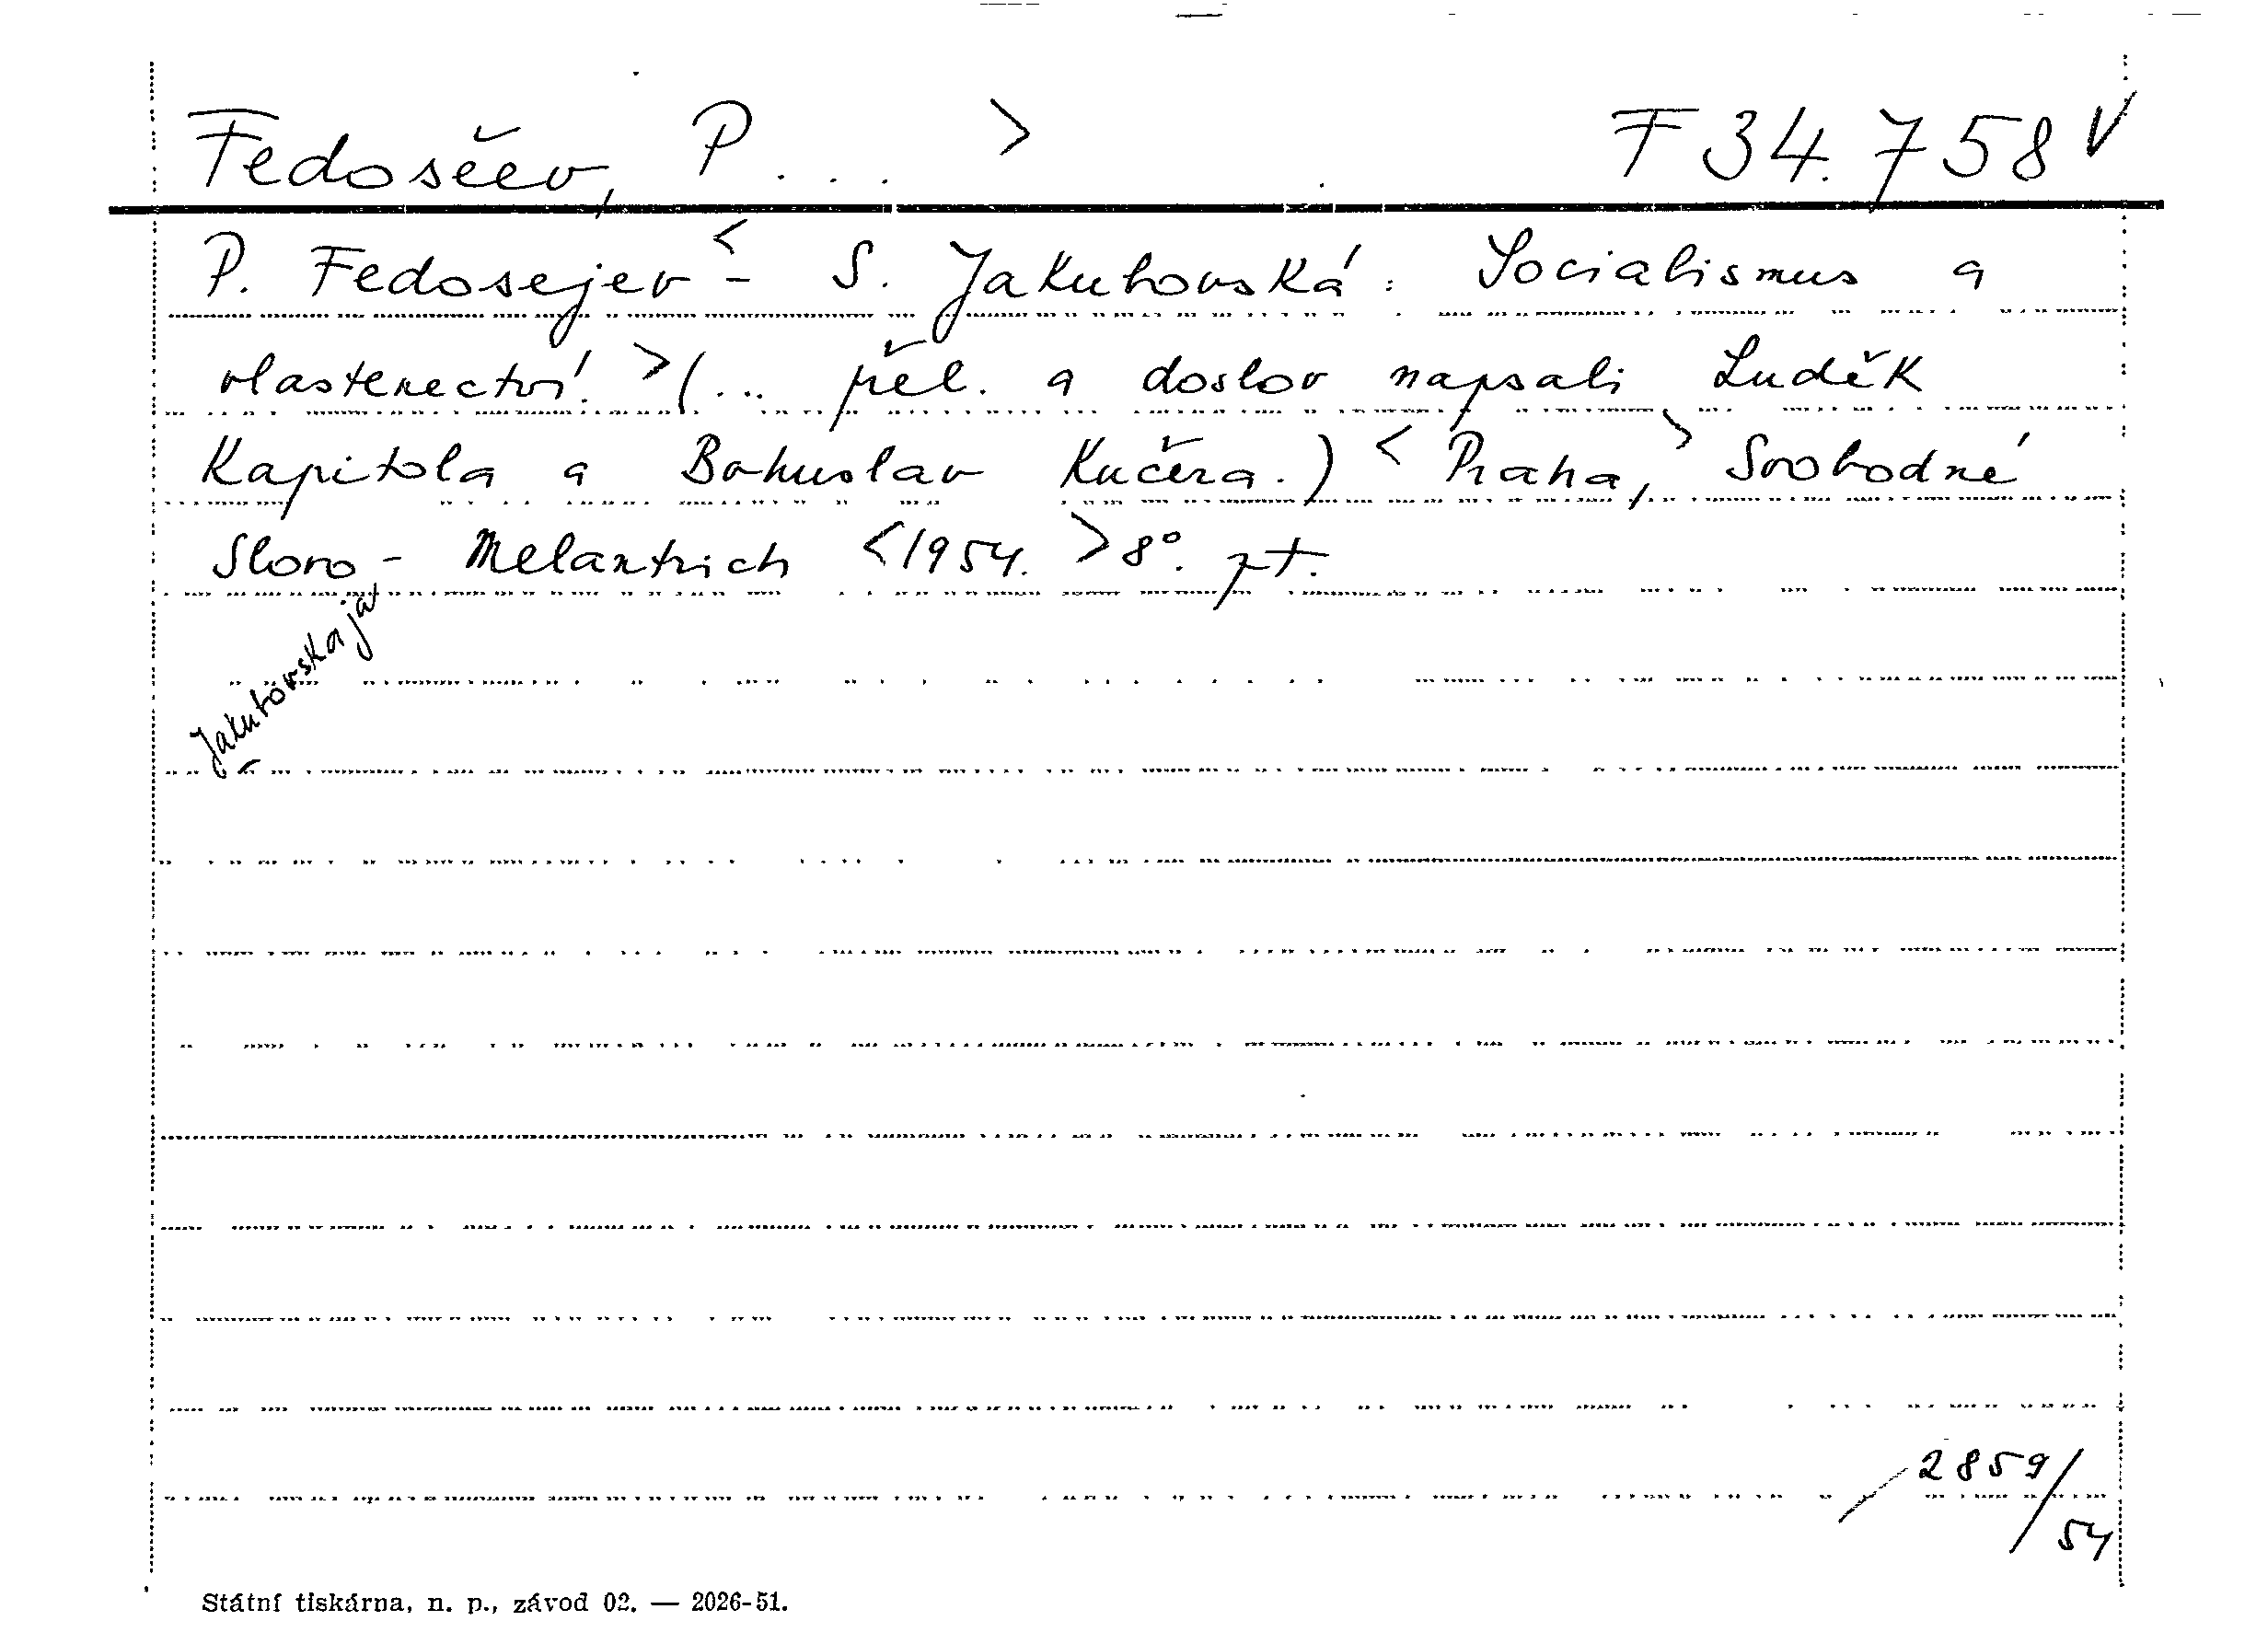 Fedosěev, P... > F 34.758 V
P. Fedosejev < - S. Jakubovská: Socialismus a
vlastenectví. > (... přel. a doslov napsali Luděk
Kapitola a Bohuslav Kučera.) < Praha, > Svobodné
Slovo - Melantrich <1954. > 8°. pt.
Jakubovskaja
2859/
54
Státní tiskárna, n. p., závod 02. — 2026-51.